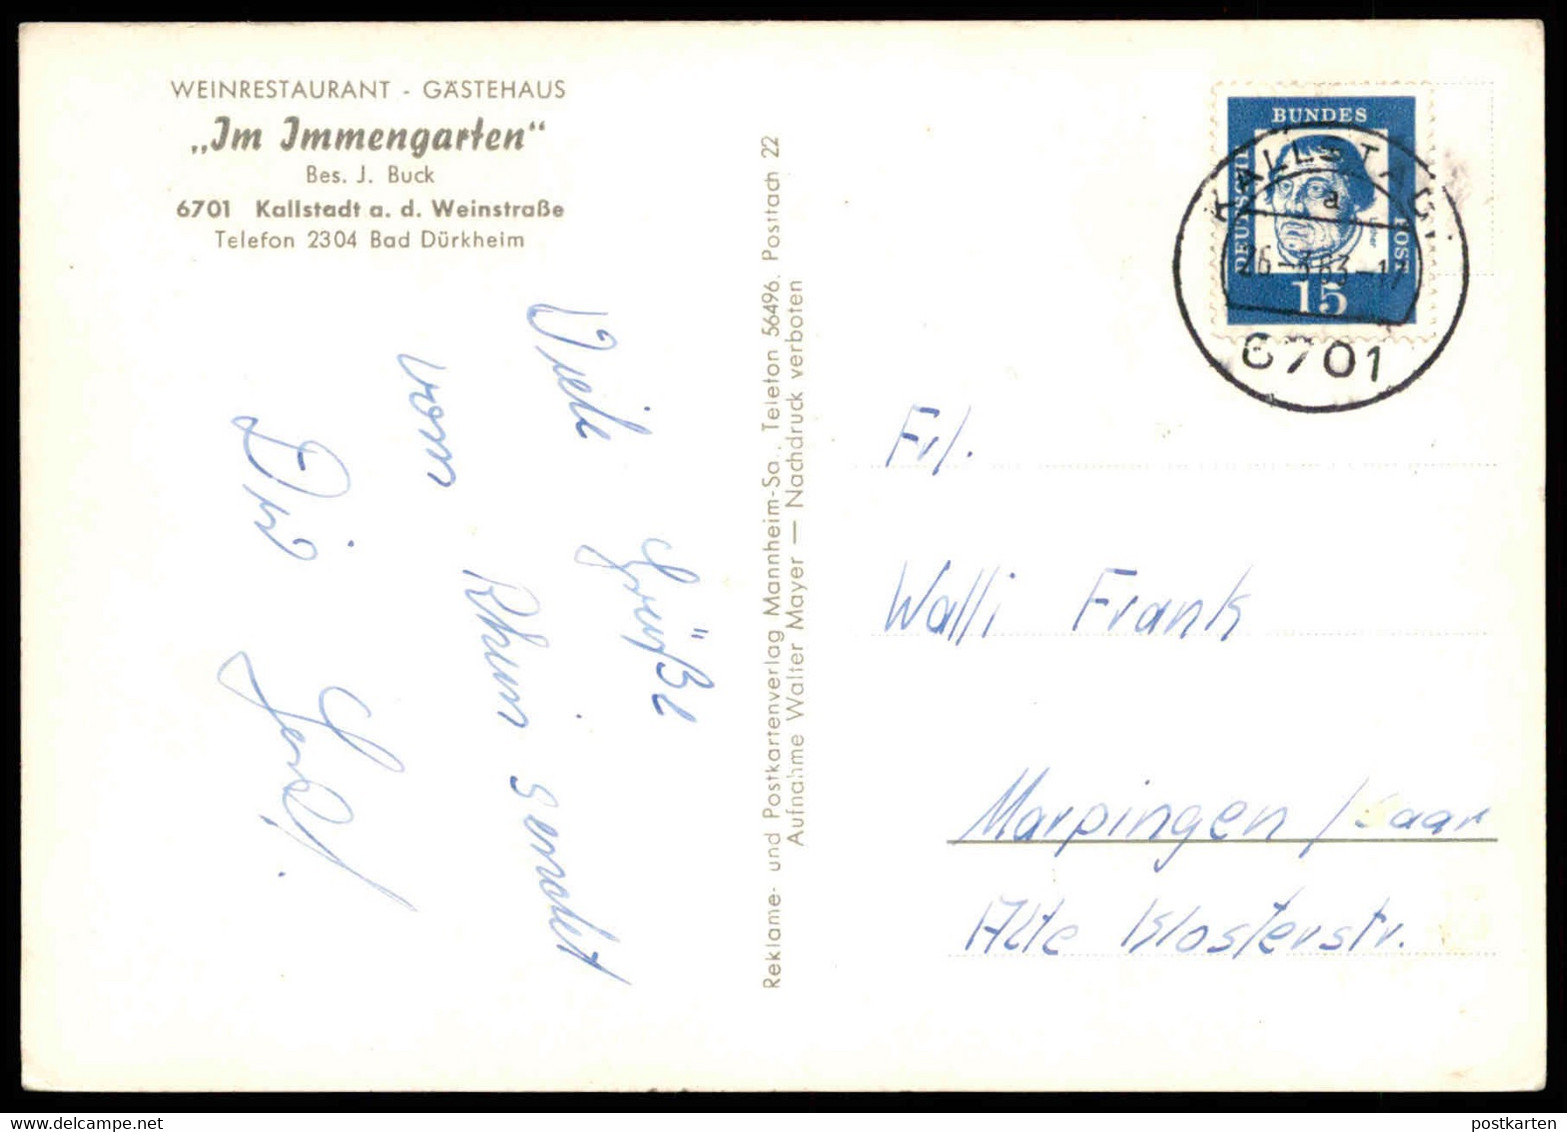 WEINRESTAURANT - GÄSTEHAUS
„Im Immengarten“
Bes. J. Buck
6701 Kallstadt a. d. Weinstraße
Telefon 2304 Bad Dürkheim
Viele Grüße
vom Rhein sendet
Dir
Reklame- und Postkartenverlag Mannheim-Sa., Telefon 56496. Postfach 22
Aufnahme Walter Mayer — Nachdruck verboten
DEUTSCHE
BUNDES
POST
15
KALLSTADT
a
26-3.63-17
6701
Frl.
Walli Frank
Marpingen / Saar
Alte Klosterstr.
postkarten